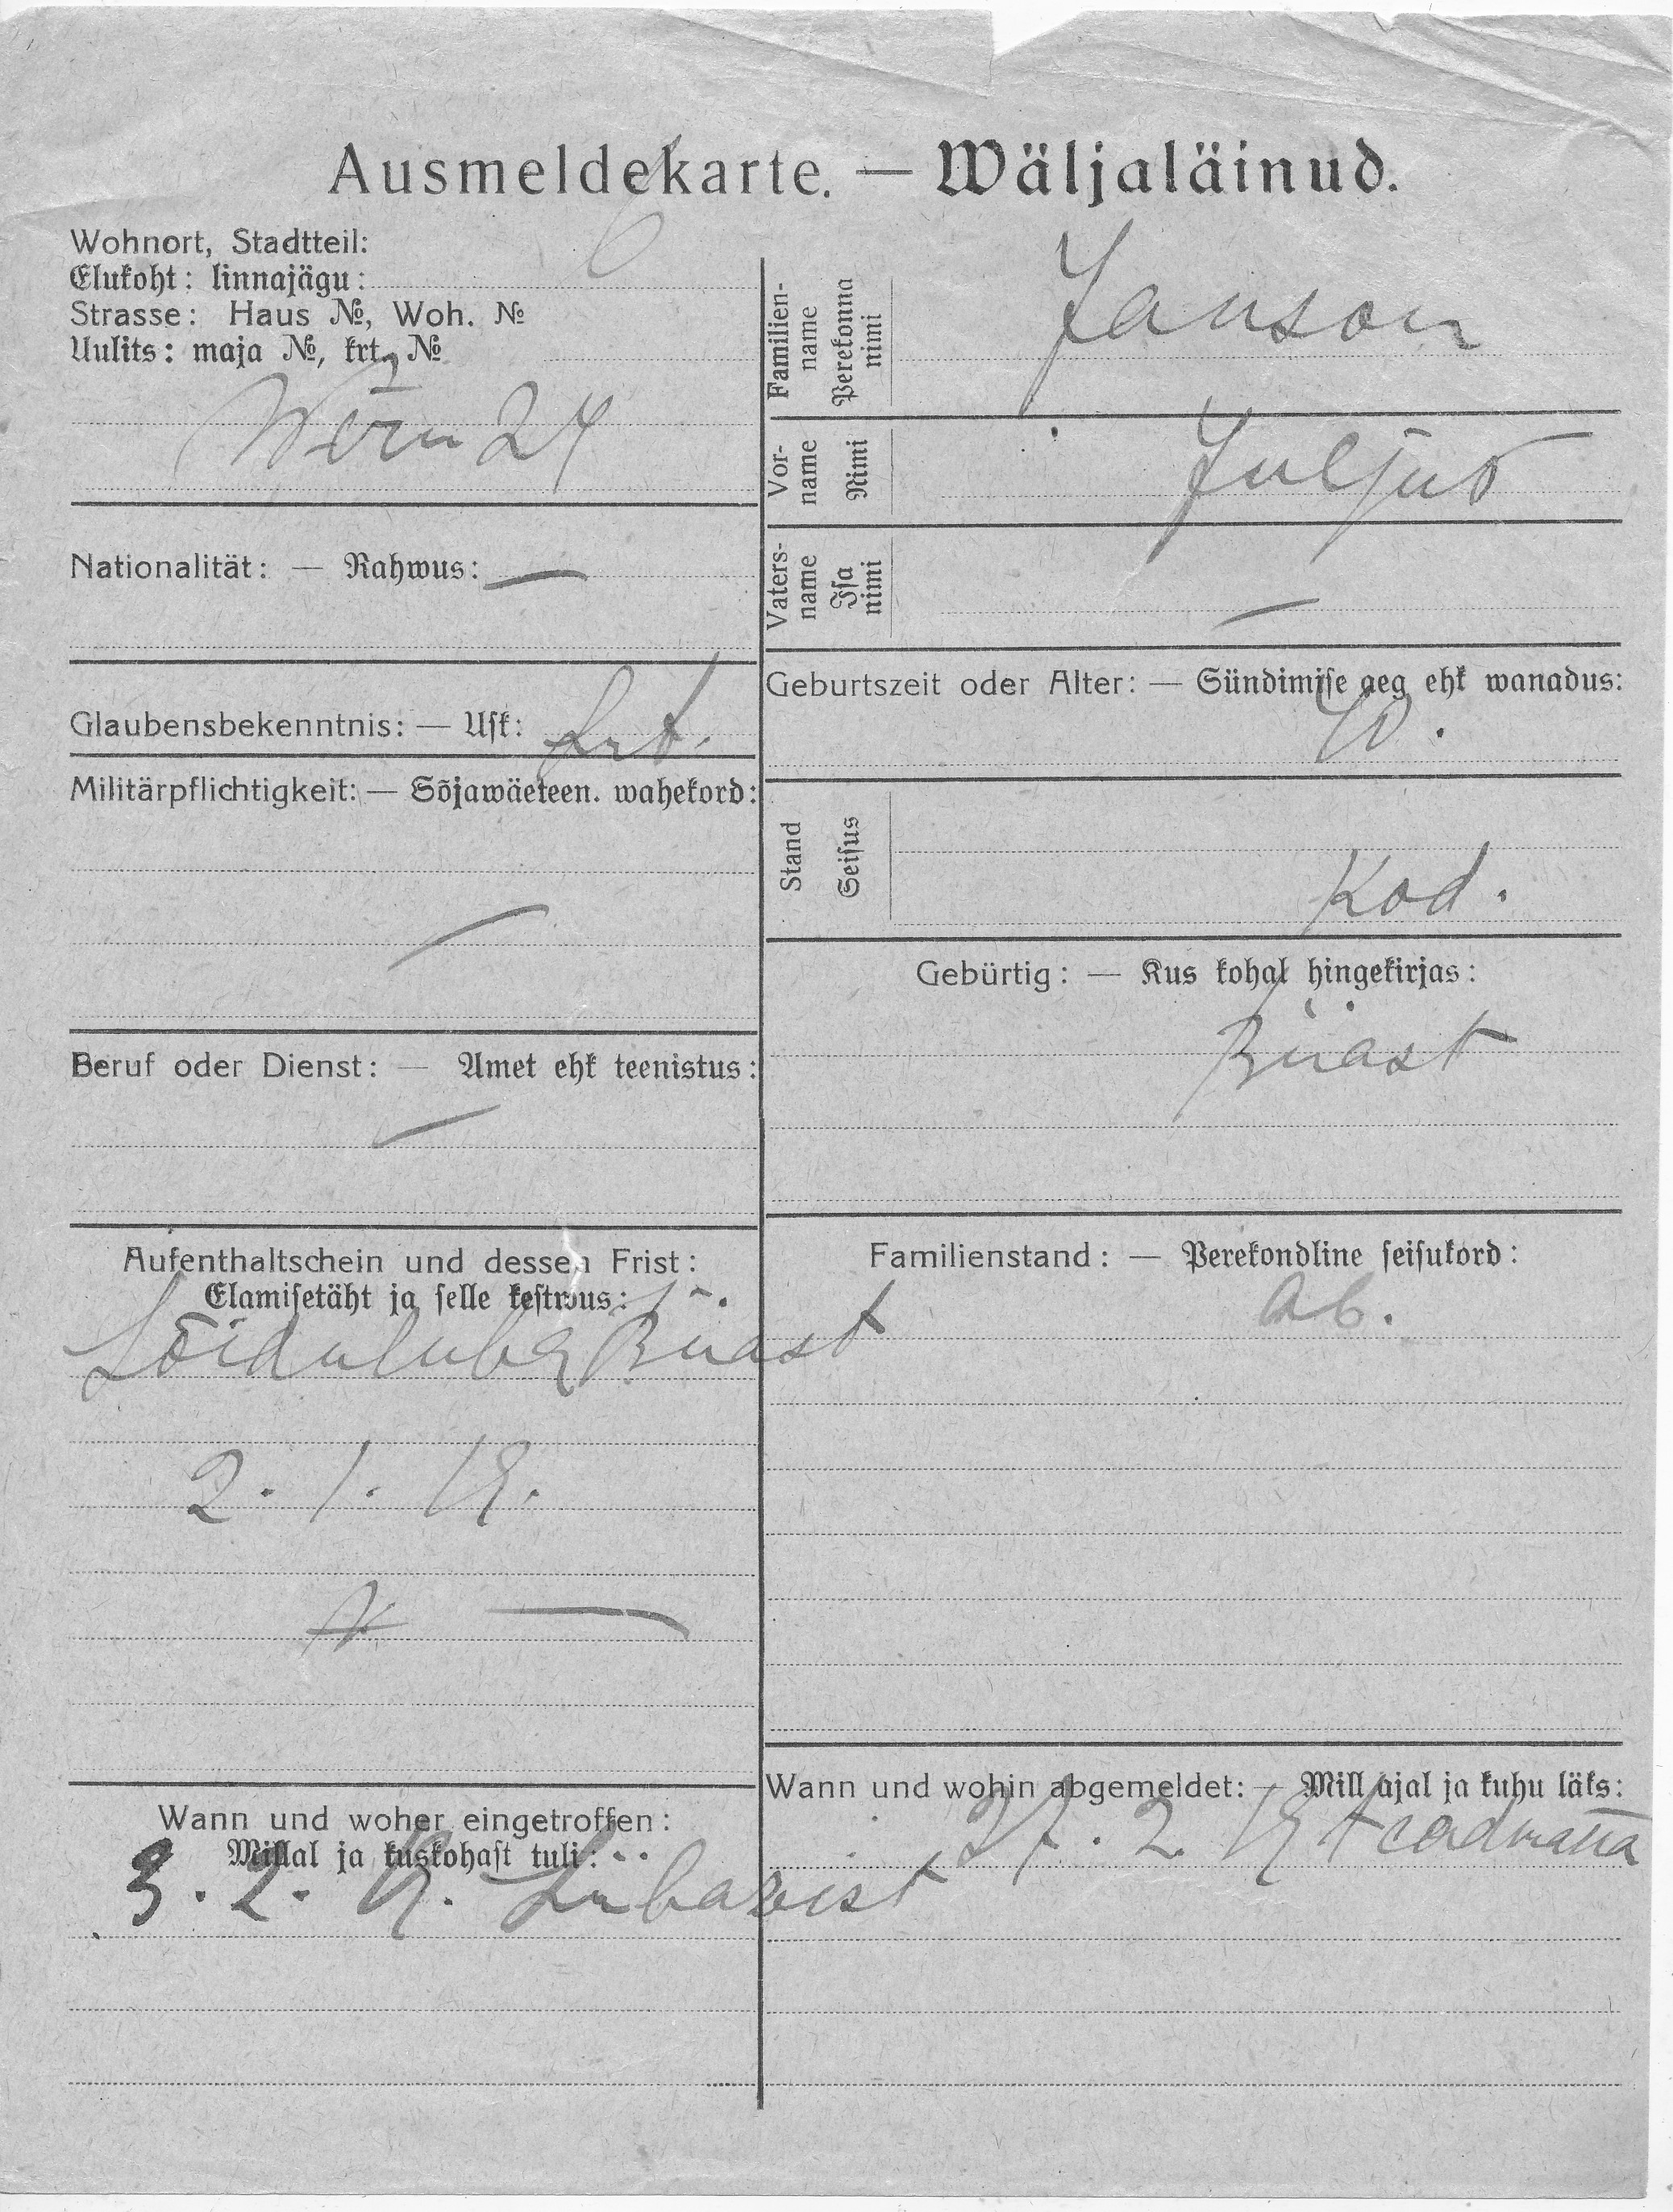 Ausmeldekarte. — Wäljaläinud.
Wohnort, Stadtteil:
Elukoht: linnajägu:
Strasse: Haus №, Woh. №
Uulits: maja №, krt. №
Wõru 24
Familien-name
Perekonna nimi
Janson
Vor-name
Nimi
Juljus
Vaters-name
Isa nimi
—
Nationalität: — Rahwus: —
Glaubensbekenntnis: — Usk: Lut.
Geburtszeit oder Alter: — Sündimise aeg ehk wanadus:
40.
Militärpflichtigkeit: — Sõjawäeteen. wahekord:
—
Stand
Seisus
Kod.
Gebürtig: — Kus kohal hingekirjas:
Riiast
Beruf oder Dienst: — Amet ehk teenistus:
—
Aufenthaltschein und dessen Frist:
Elamisetäht ja selle kestwus:
Sõiduluba Riiast
2. 1. 19.
—
Familienstand: — Perekondline seisukord:
Ab.
Wann und woher eingetroffen:
Millal ja kuskohast tuli:
3. 2. 19.
Wann und wohin abgemeldet: — Mill ajal ja kuhu läks:
27. 2. 19 teadmata